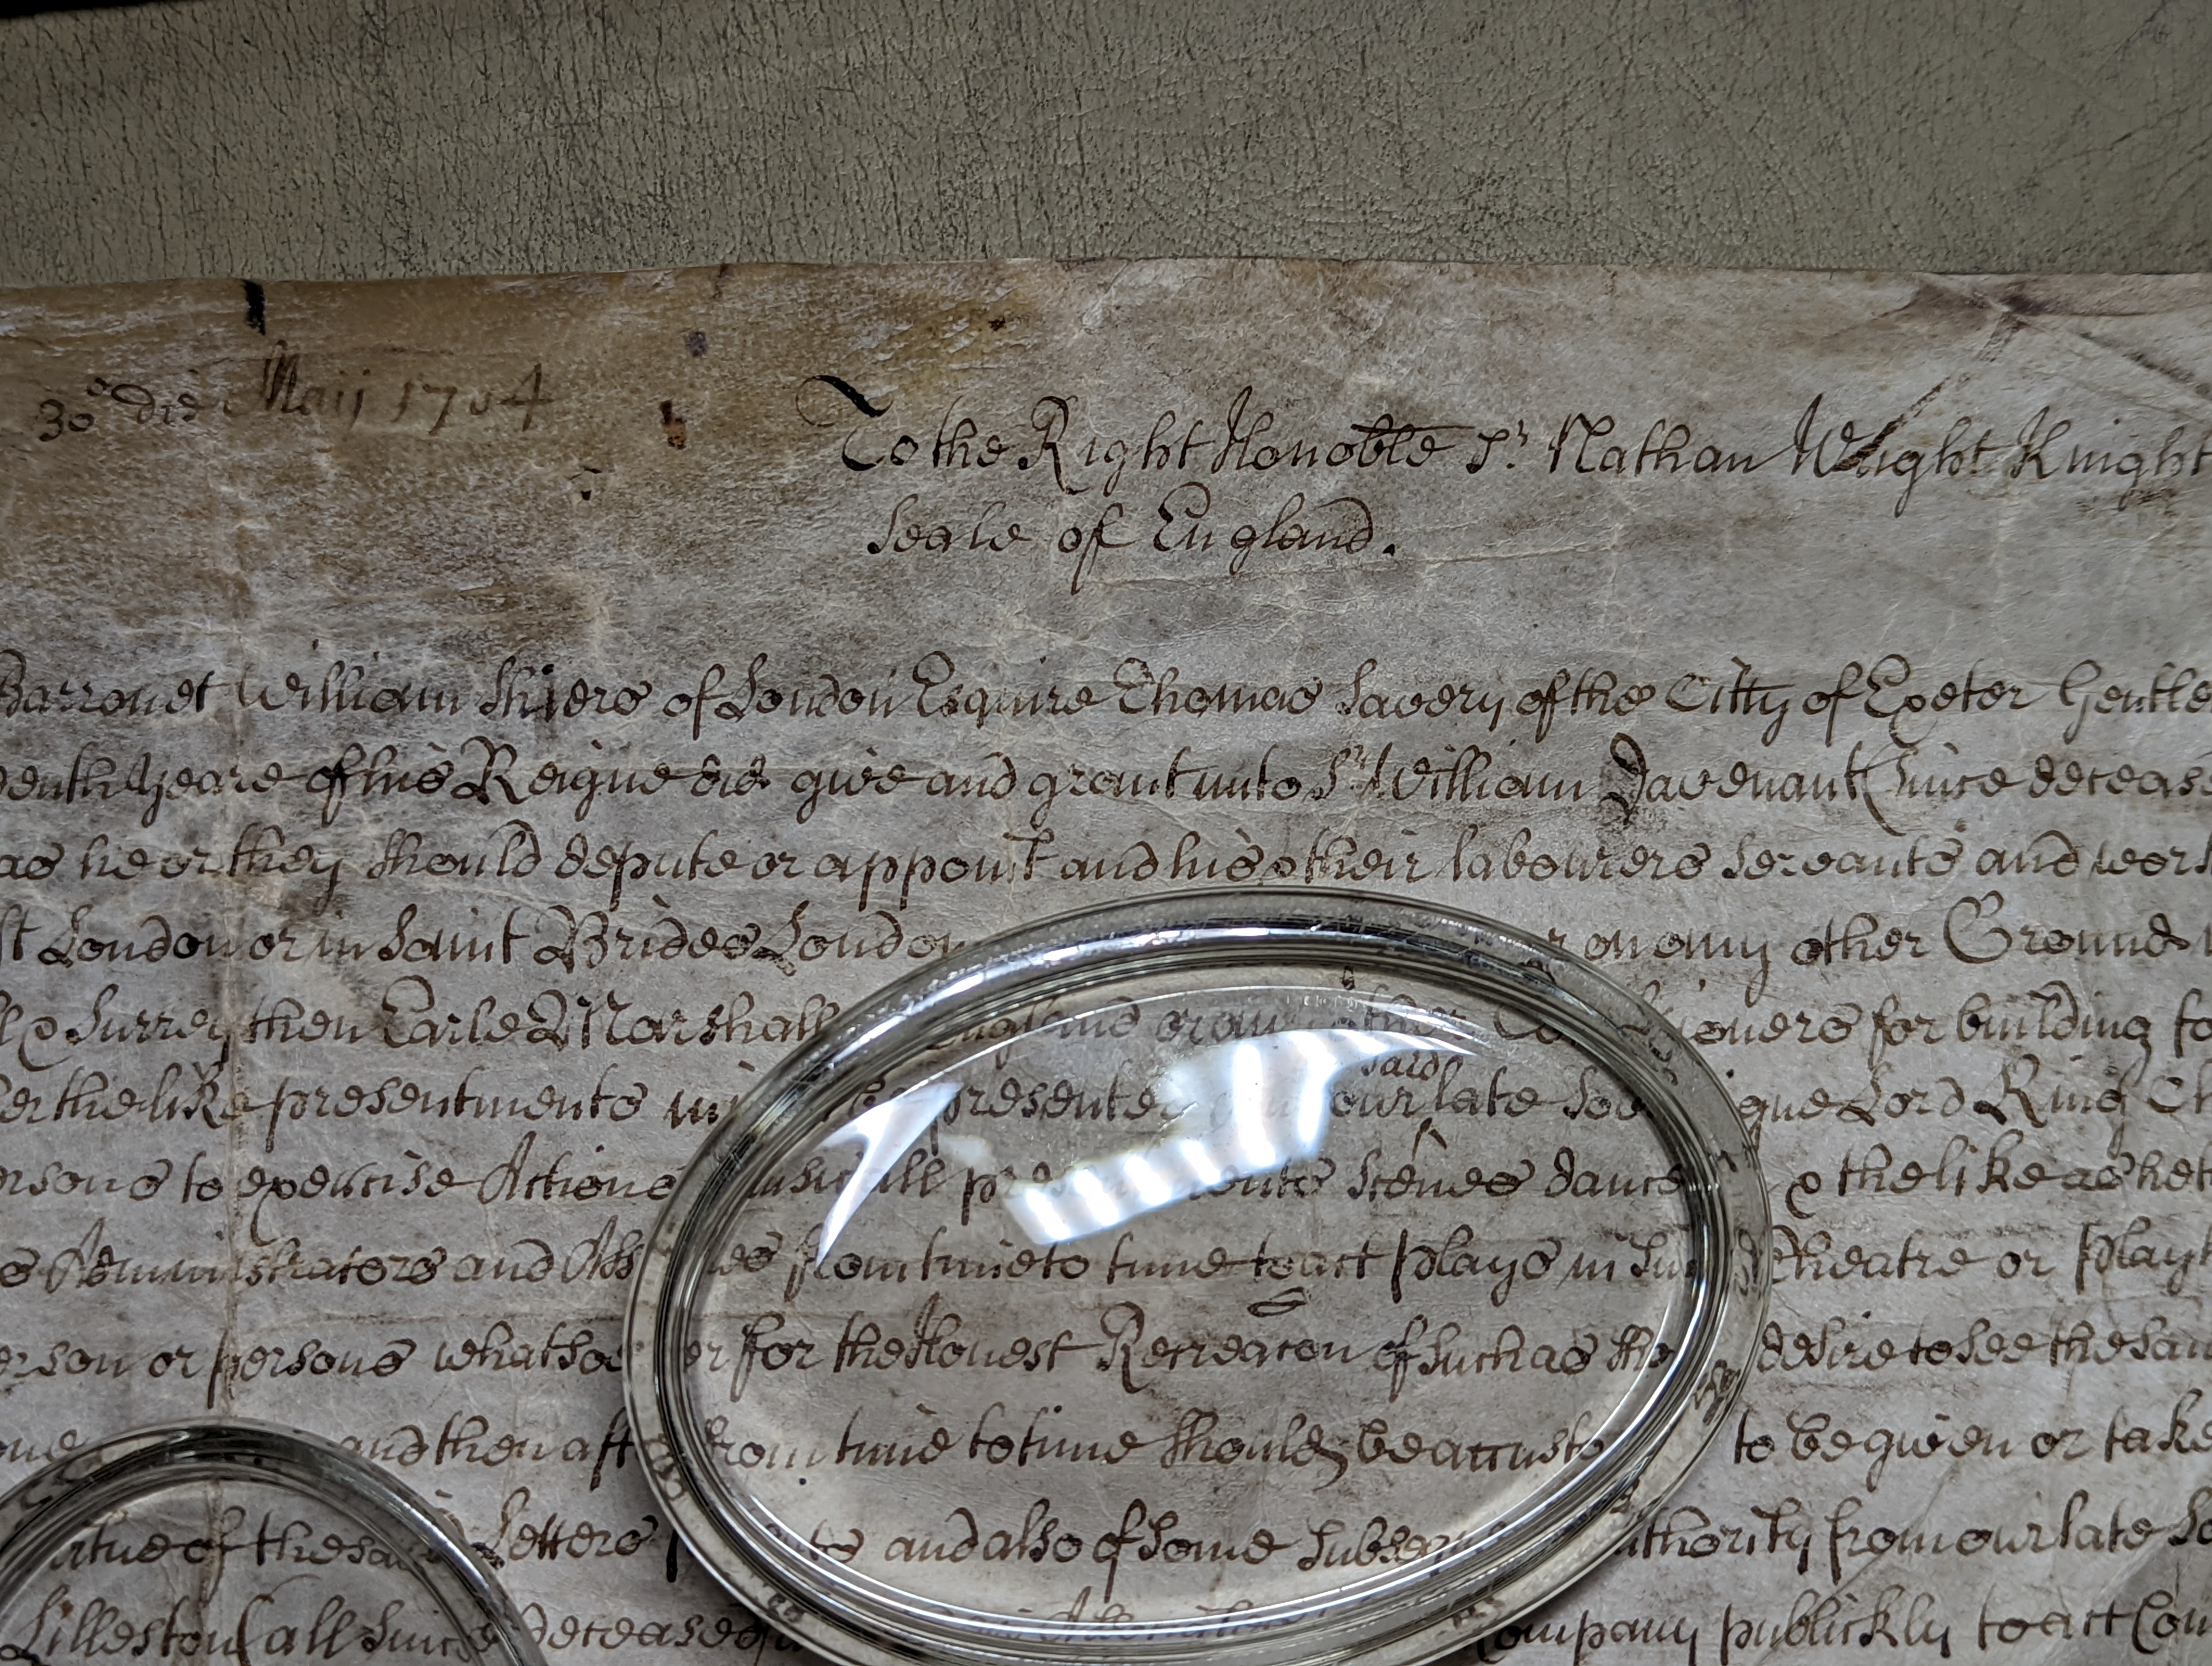 30º die Maij 1704
To the Right Honoble Sr. Nathan Wright Knight
Seale of England.
Barronet William Shiers of London Esquire Thomas Savery of the Citty of Exeter Gentle
yeare of his Reigne did give and grant unto Sr. William Davenant (since deceas
as he or they should depute or appoint and his & their labourers servants and work
London or in Saint Brides London on any other Ground
& Surrey then Earle Marshall England or any other for building
the like presentments presented our said late Lord King Ch
to exercise Actions musicall scenes dance & the like as
Administrators and from time to time to act plays in Theatre or play
person or persons whatsoever for the Honest Recreacon of such as desire to see the sam
and then from time to time should be accusto to be given or take
of the said Letters and also of some authority from our late
Lilleston (all since deceased) Company publickly to act Com